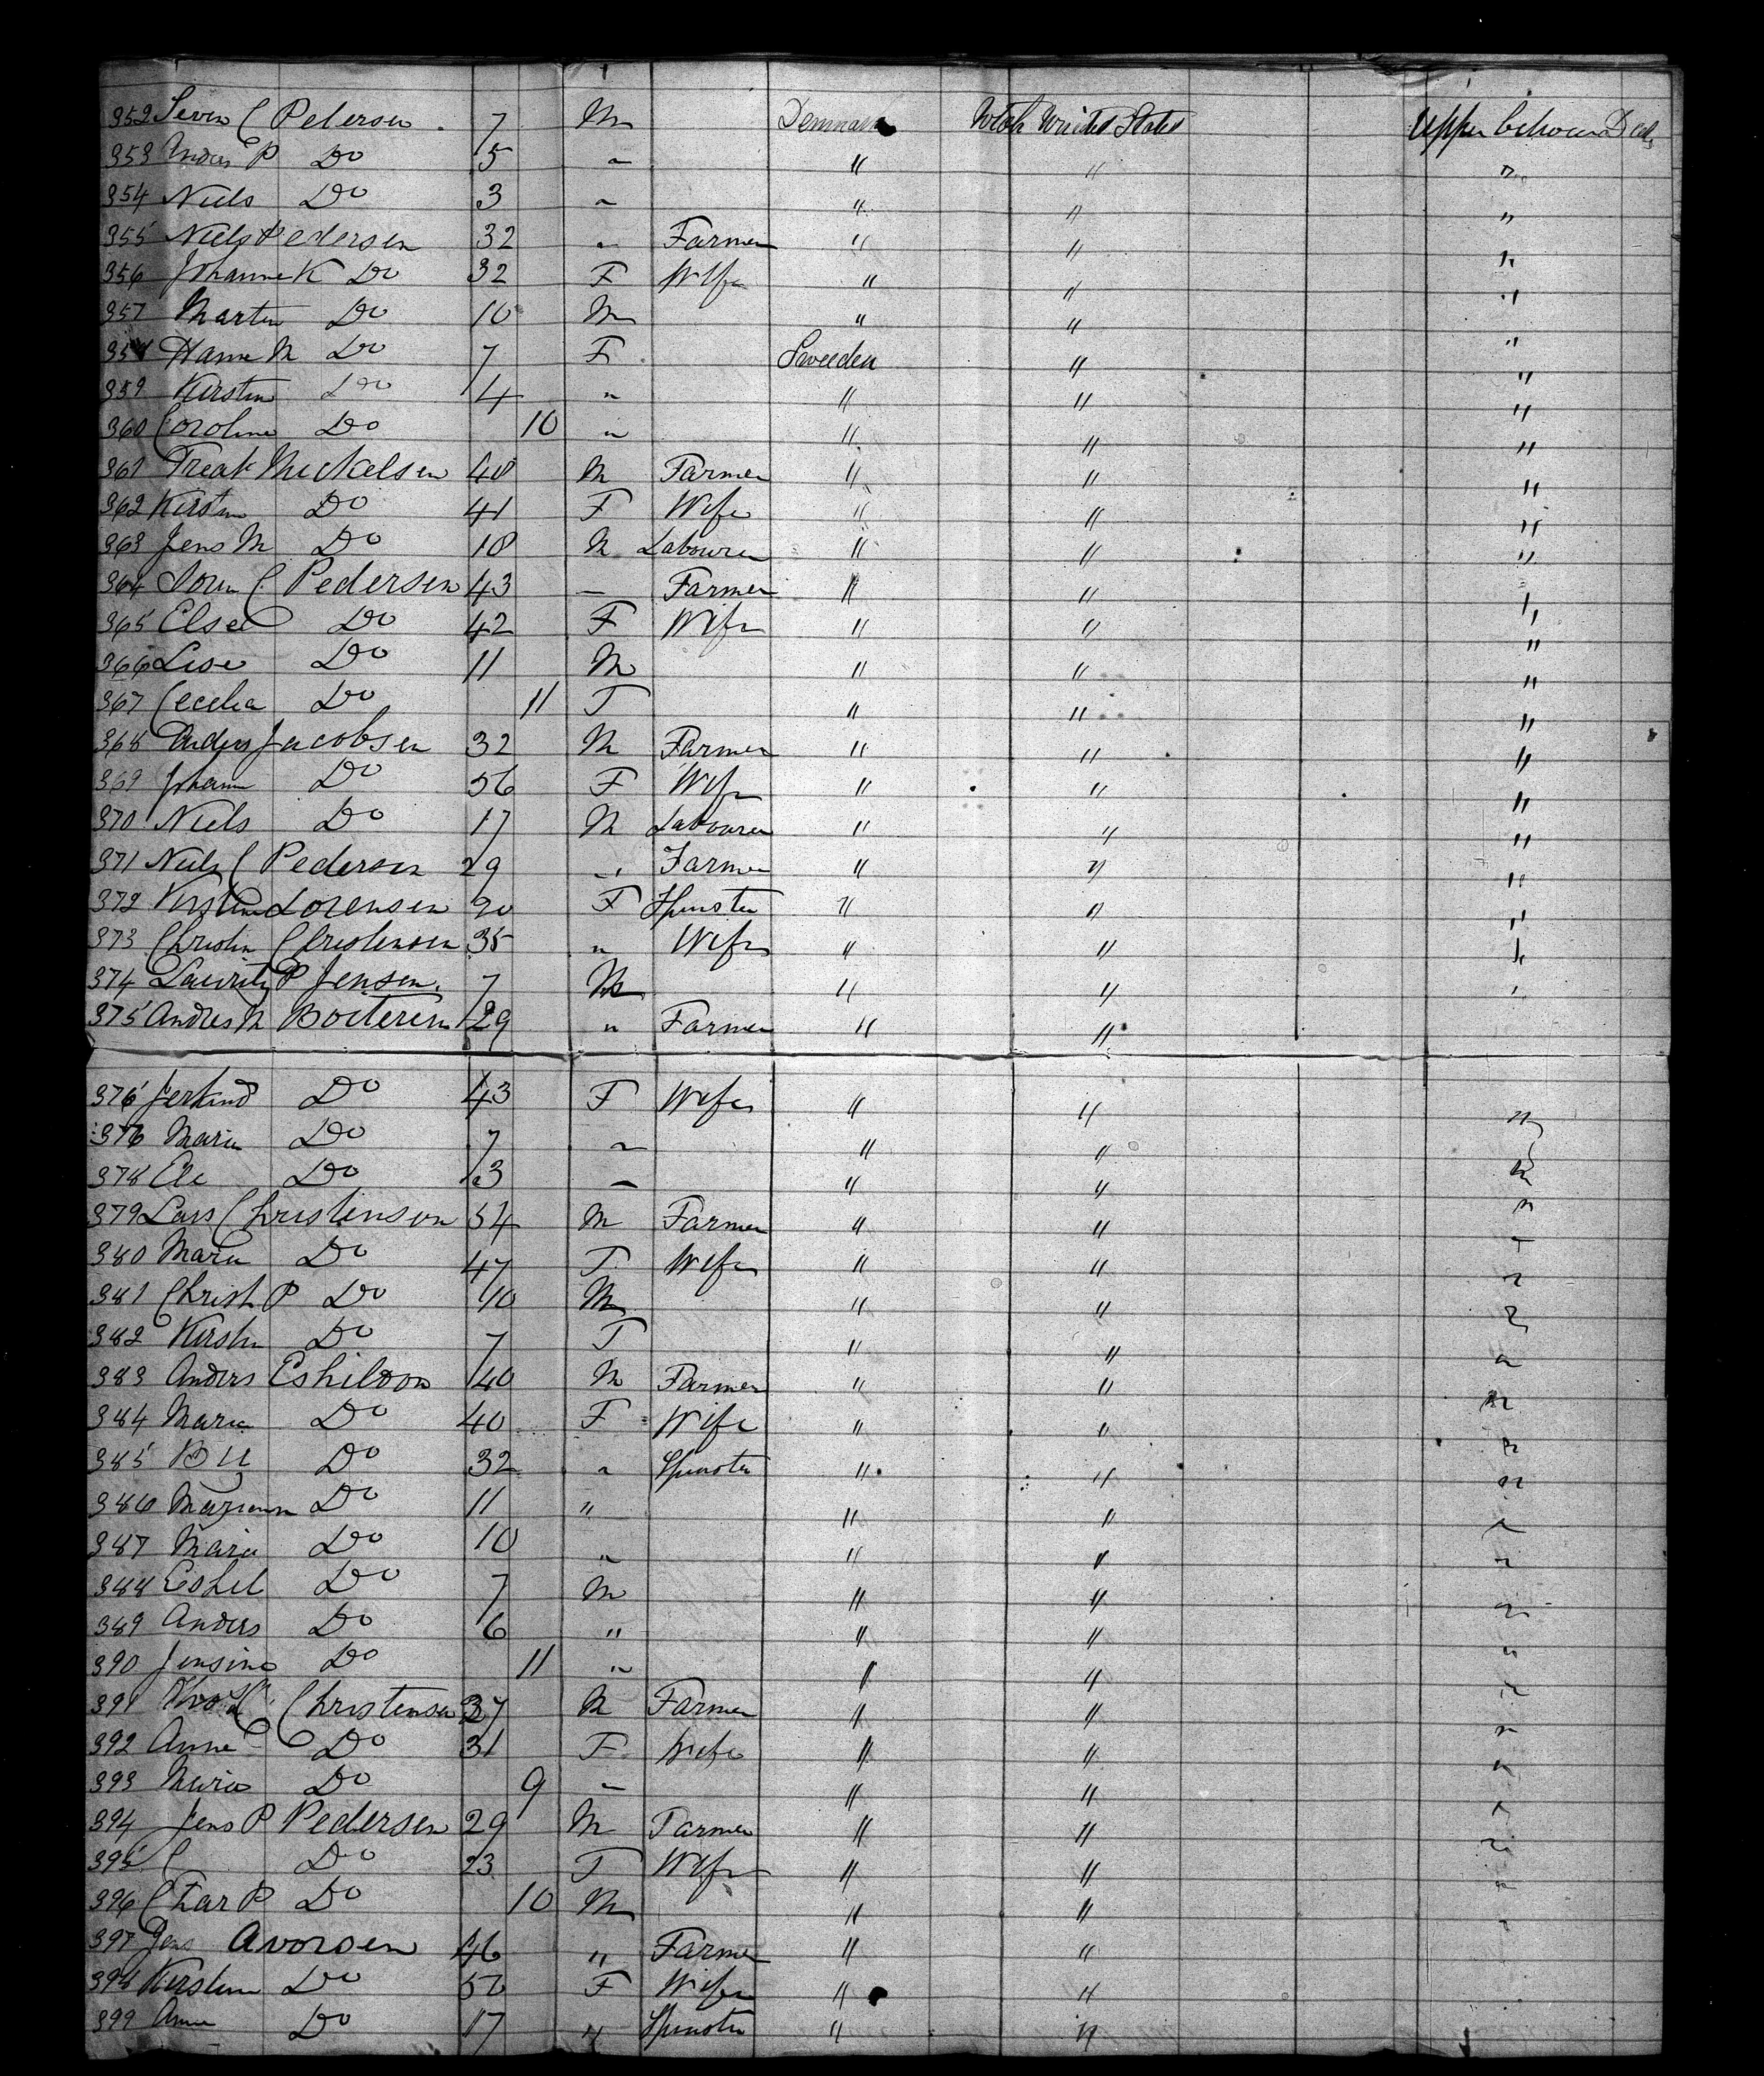 352 Seven C Pedersen 7 M Denmark Utah United States Upper Between Decks
353 Anders P Do 5 " " " "
354 Niels Do 3 " " " "
355 Niels Pedersen 32 " Farmer " " "
356 Johanne K Do 32 F Wife " " "
357 Martin Do 10 M " " "
358 Hanne M Do 7 F Sweeden " "
359 Kirstin Do 4 " " " "
360 Caroline Do 10 " " " "
361 Mickelsen 40 M Farmer " " "
362 Kirstin Do 41 F Wife " " "
363 Jens M Do 18 M Labourer " " "
364 Soren C Pedersen 43 — Farmer " " "
365 Else Do 42 F Wife " " "
366 Lise Do 11 M " " "
367 Cecelia Do 11 F " " "
368 Anders Jacobsen 32 M Farmer " " "
369 Johann Do 56 F Wife " " "
370 Niels Do 17 M Labourer " " "
371 Niels C Pedersen 29 " Farmer " " "
372 Kirstine Lorensen 30 F Spinster " " "
373 Christin Christensen 35 " Wife " " "
374 Lauritz P Jensen 7 M " " "
375 Andres M 29 " Farmer " " "
376 Do 43 F Wife " " "
376 Maria Do 7 " " " "
378 Ele Do 3 " " " "
379 Lars Christensen 54 M Farmer " " "
380 Maria Do 47 F Wife " " "
381 Christ P Do 10 M " " "
382 Kirstin Do 7 F " " "
383 Anders Eskildson 40 M Farmer " " "
384 Maria Do 40 F Wife " " "
385 Do 32 " Spinster " " "
386 Mariann Do 11 " " " "
387 Maria Do 10 " " " "
388 Eskel Do 7 M " " "
389 Anders Do 6 " " " "
390 Jensine Do 11 " " " "
391 Christensen 37 M Farmer " " "
392 Anne Do 31 F Wife " " "
393 Maria Do 9 " " " "
394 Jens P Pedersen 29 M Farmer " " "
395 C Do 23 F Wife " " "
396 Char P Do 10 M " " "
397 Jens Avorsen 46 " Farmer " "
398 Kirstine Do 50 F Wife " "
399 Anne Do 17 " Spinster " "